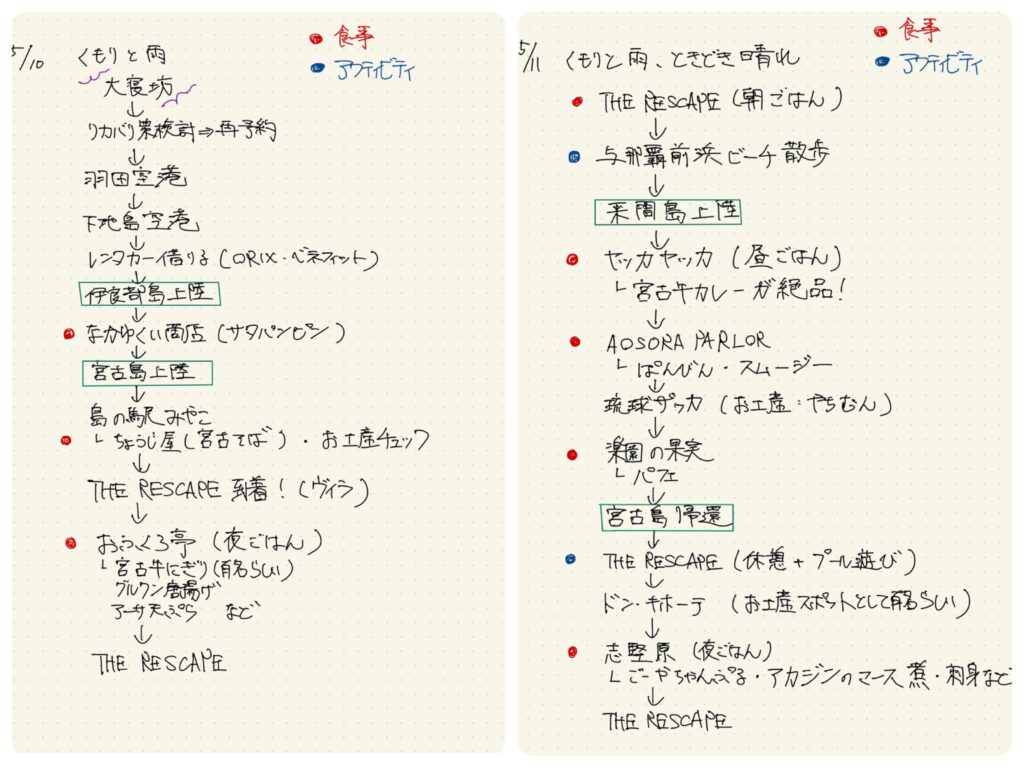 5/10 くもりと雨
大寝坊
↓
リカバリ策検討⇒再予約
↓
羽田空港
↓
下地島空港
↓
レンタカー借りる(ORIX・ベネフィット)
↓
伊良部島上陸
↓
なかゆくい商店(サタパンビン)
↓
宮古島上陸
↓
島の駅みやこ
└ ちょうじ屋(宮古そば)・お土産チェック
↓
THE RESCAPE 到着!(ヴィラ)
↓
おふくろ亭(夜ごはん)
└宮古牛にぎり(有名らしい)
グルクン唐揚げ
アーサ天ぷら など
↓
THE RESCAPE
食事
アクティビティ
5/11 くもりと雨、ときどき晴れ
THE RESCAPE(朝ごはん)
↓
与那覇前浜ビーチ散歩
↓
来間島上陸
↓
ヤッカヤッカ(昼ごはん)
└宮古牛カレーが絶品!
↓
AOSORA PARLOR
└ ぱんびん・スムージー
↓
琉球ザッカ(お土産:やちむん)
↓
楽園の果実
└パフェ
↓
宮古島帰還
↓
THE RESCAPE(休憩+プール遊び)
↓
ドン・キホーテ(お土産スポットとして有名らしい)
↓
志堅原(夜ごはん)
└ごーやちゃんぷる・アカジンのマース煮・刺身など
↓
THE RESCAPE
食事
アクティビティ